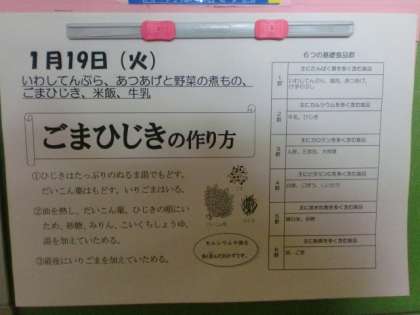 1月19日（火）
いわしてんぷら、あつあげと野菜の煮もの、
ごまひじき、米飯、牛乳
ごまひじきの作り方
①ひじきはたっぷりのぬるま湯でもどす。
だいこん葉はもどす。いりごまはいる。
②油を熱し、だいこん葉、ひじきの順にい
ため、砂糖、みりん、こいくちしょうゆ、
湯を加えていためる。
③最後にいりごまを加えていためる。
カルシウムや鉄を
多く含んだおかずです。
６つの基礎食品群
主にたんぱく質を多く含む食品
1群
いわしてんぷら、鶏肉、あつあげ、
主にカルシウムを多く含む食品
2群
牛乳、ひじき
主にカロテンを多く含む食品
3群
主にビタミンCを多く含む食品
4群
主に炭水化物を多く含む食品
5群
精白米、砂糖
主に脂質を多く含む食品
6群
油、ごま